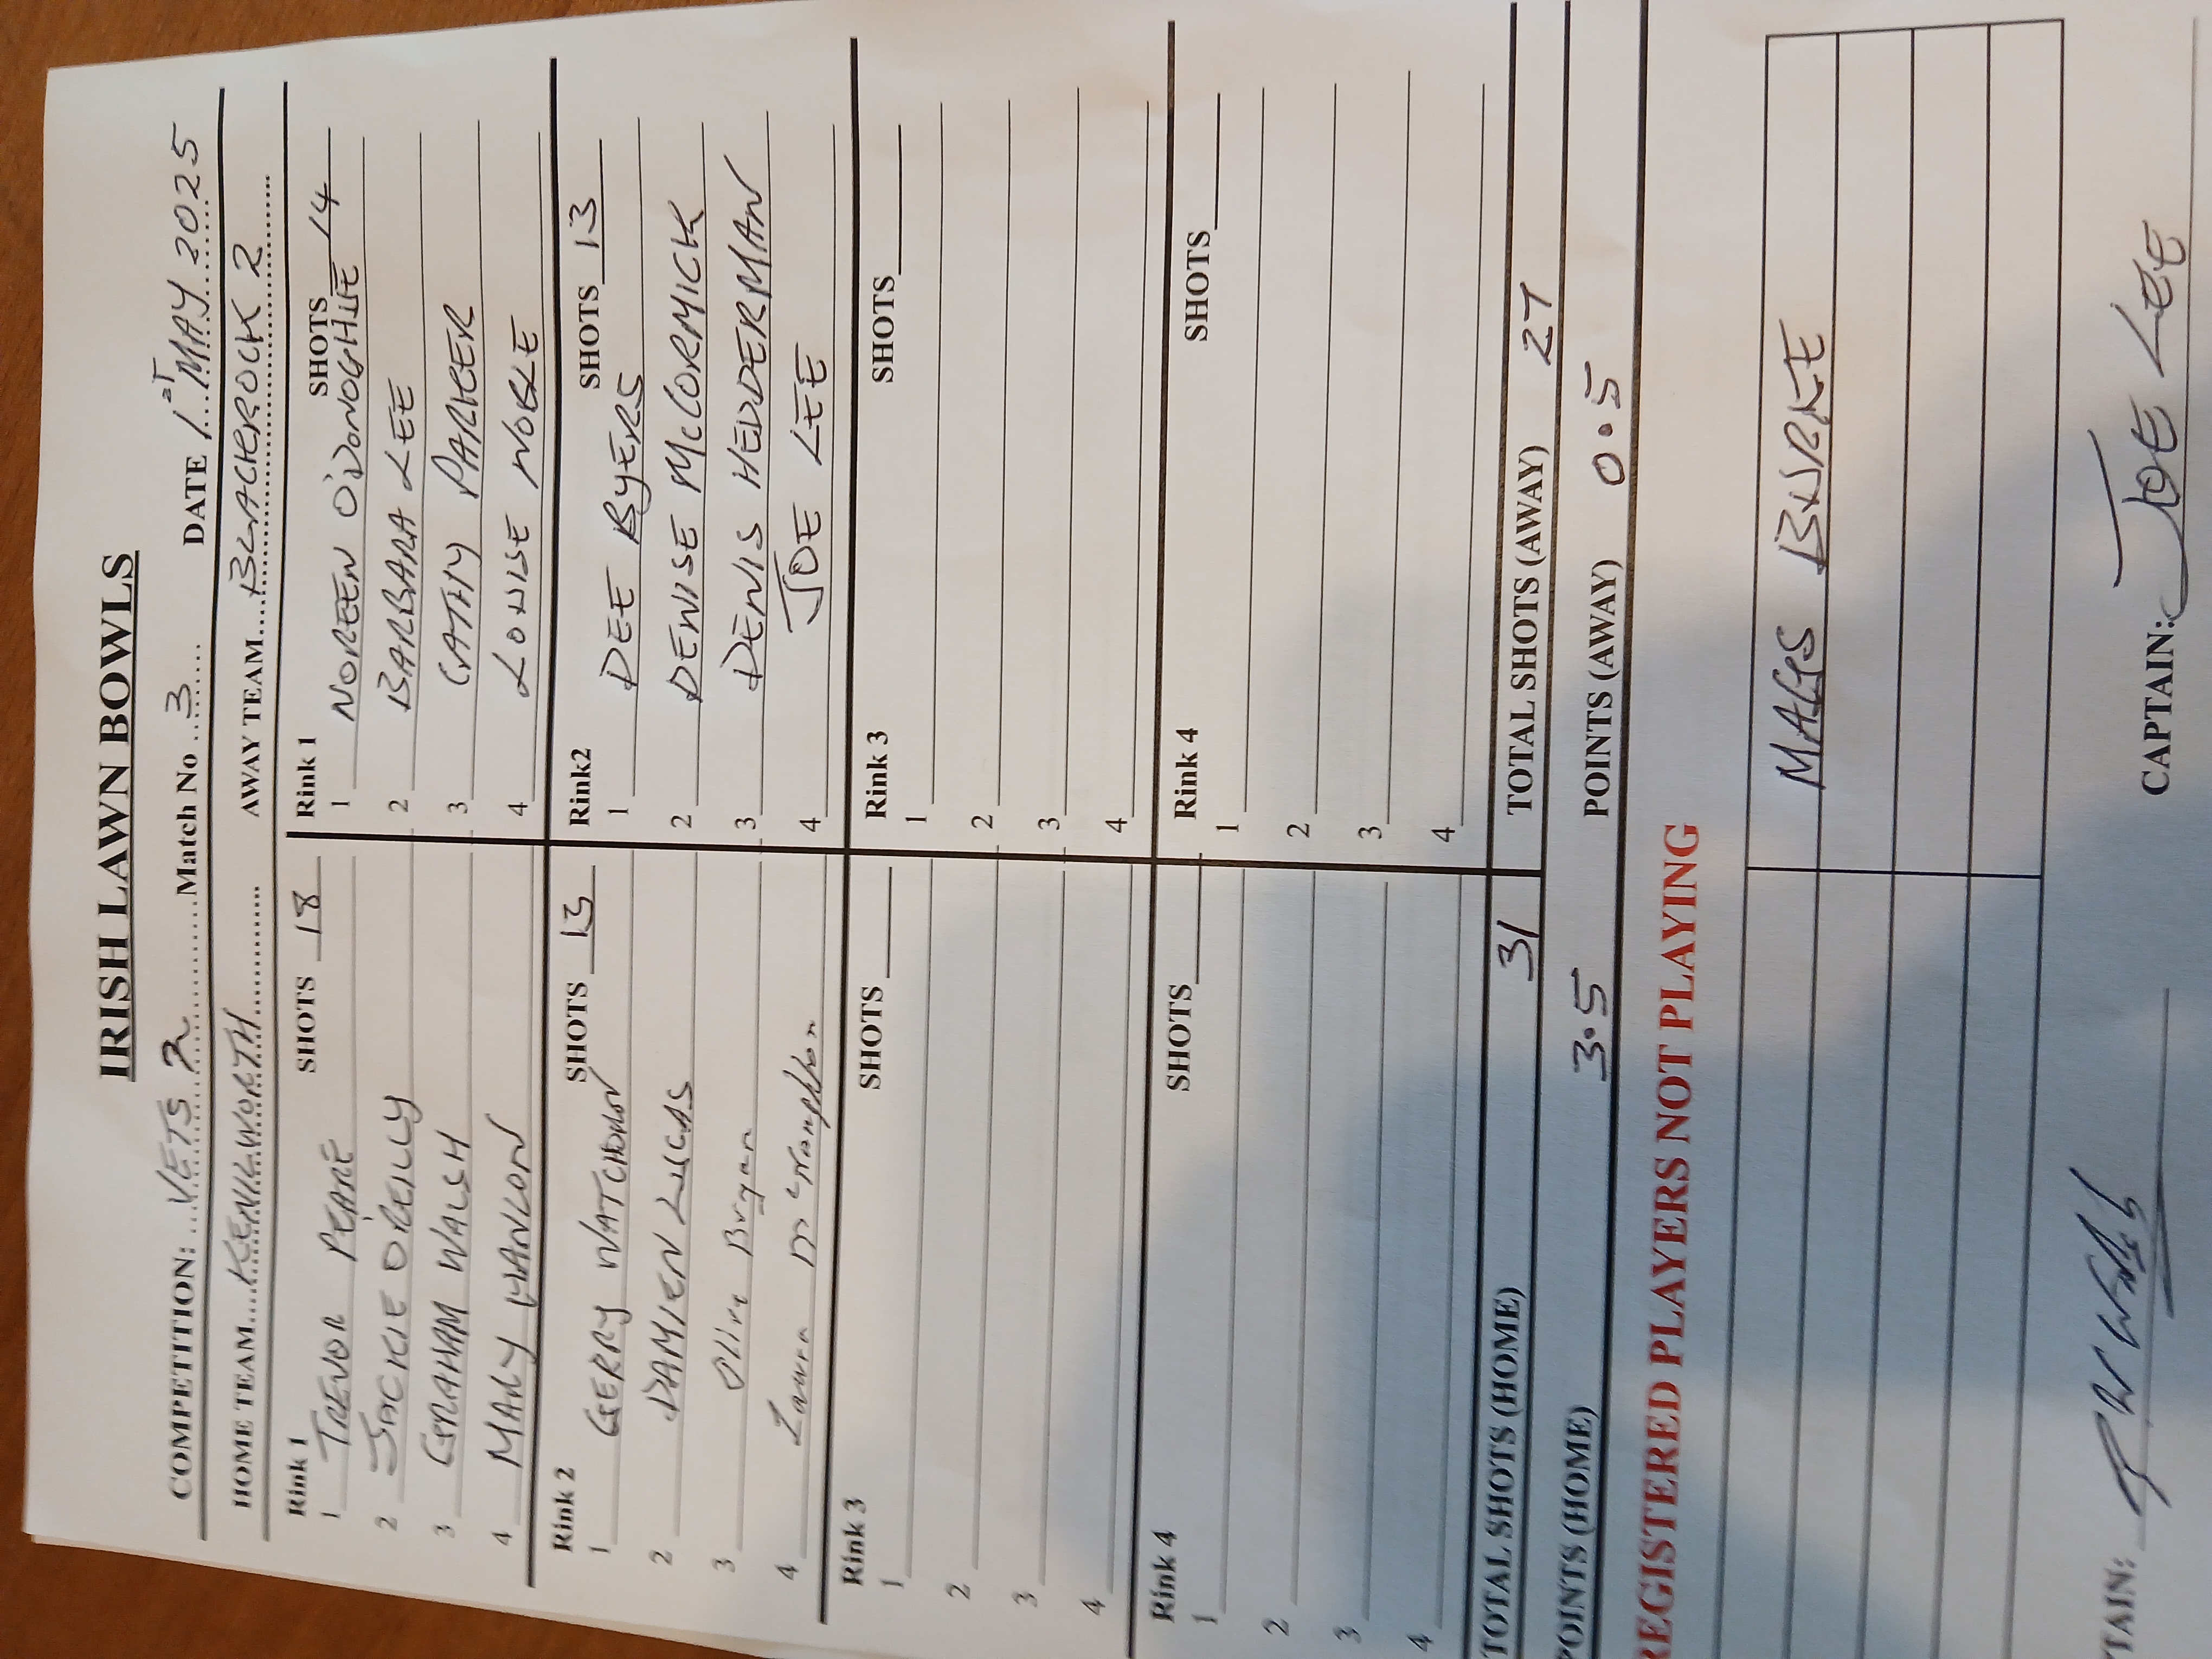 IRISH LAWN BOWLS
COMPETITION: VETS 2 Match No 3 DATE 1ST MAY 2025
HOME TEAM KENILWORTH AWAY TEAM BLACKROCK 2
Rink 1 SHOTS 18 Rink 1 SHOTS 14
1 TREVOR PEARE 1 NOREEN O'DONOGHUE
2 JACKIE O'REILLY 2 BARBARA LEE
3 GRAHAM WALSH 3 CATHY PARKER
4 MARY HANLON 4 LOUISE NOBLE
Rink 2 SHOTS 13 Rink2 SHOTS 13
1 GERRY WATCHORN 1 DEE BYERS
2 DAMIEN LUCAS 2 DENISE McCORMICK
3 Olive Brogan 3 DENIS HEDDERMAN
4 4 JOE LEE
Rink 3 SHOTS Rink 3 SHOTS
1 1
2 2
3 3
4 4
Rink 4 SHOTS Rink 4 SHOTS
1 1
2 2
3 3
4 4
TOTAL SHOTS (HOME) 31 TOTAL SHOTS (AWAY) 27
POINTS (HOME) 3.5 POINTS (AWAY) 0.5
REGISTERED PLAYERS NOT PLAYING
MAGS BURKE
TAIN: CAPTAIN: JOE LEE